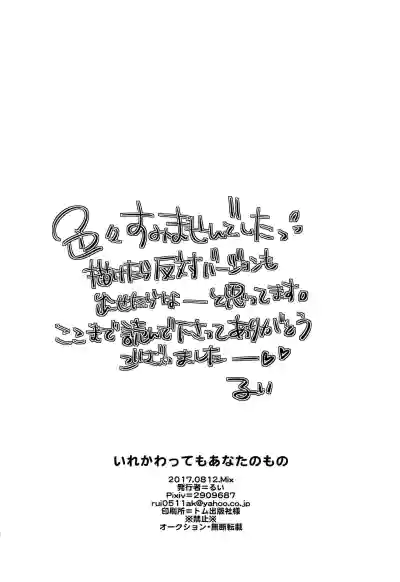 色々すみませんでしたっ
描けたら反対バージョンも
よせたけなーと思ってます。
ここまで読んで下さってありがとう
ございましたー♡♡
るい
いれかわってもあなたのもの
2017.0812.Mix
発行者=るい
Pixiv=2909687
rui0511ak@yahoo.co.jp
印刷所=トム出版社様
※禁止※
オークション・無断転載